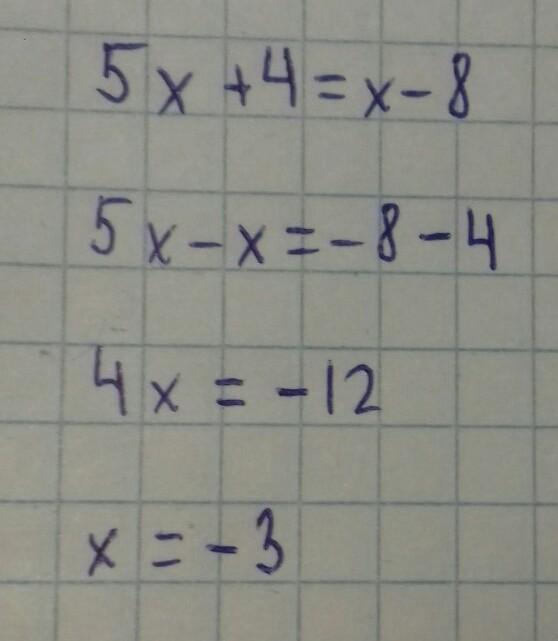 5x + 4 = x - 8
5x - x = -8 - 4
4x = -12
x = -3